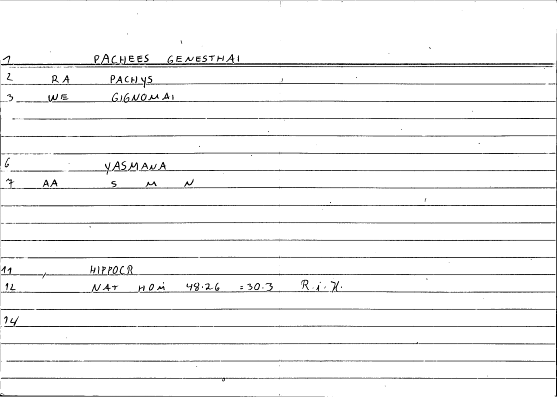 1 PACHEES GENESTHAI
2 RA PACHYS
3 WE GIGNOMAI
6 YASMANA
7 AA S M N
11 HIPPOCR
12 NAT HOM 48.26 =30.3 R.i.H.
14